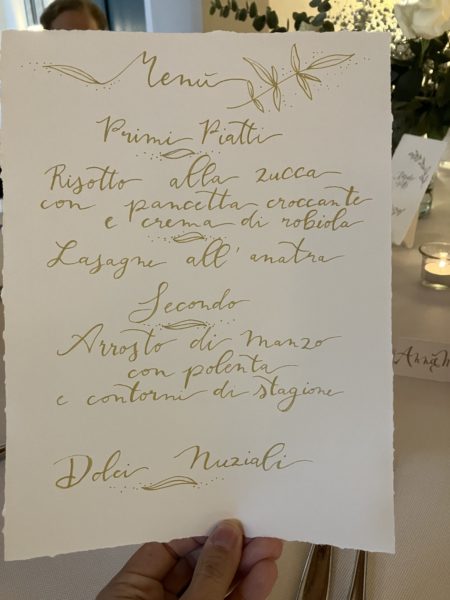 Menù
Primi Piatti
Risotto alla zucca
con pancetta croccante
e crema di robiola
Lasagne all'anatra
Secondo
Arrosto di Manzo
con polenta
e contorni di stagione
Dolci Nuziali